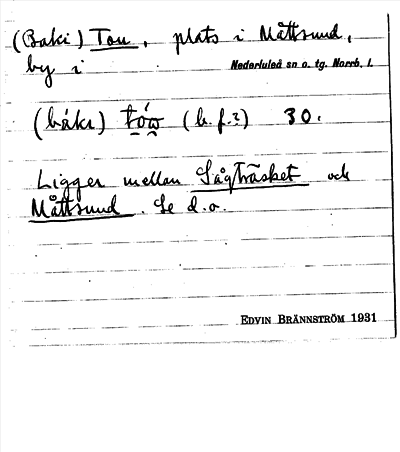 (Baki) Tou, plats i Måttsund,
by i Nederluleå sn o. tg. Norrb. l.
(báki) tów (b. f.?) 30.
Ligger mellan Sågträsket och
Måttsund. Se d.o.
EDVIN BRÄNNSTRÖM 1931